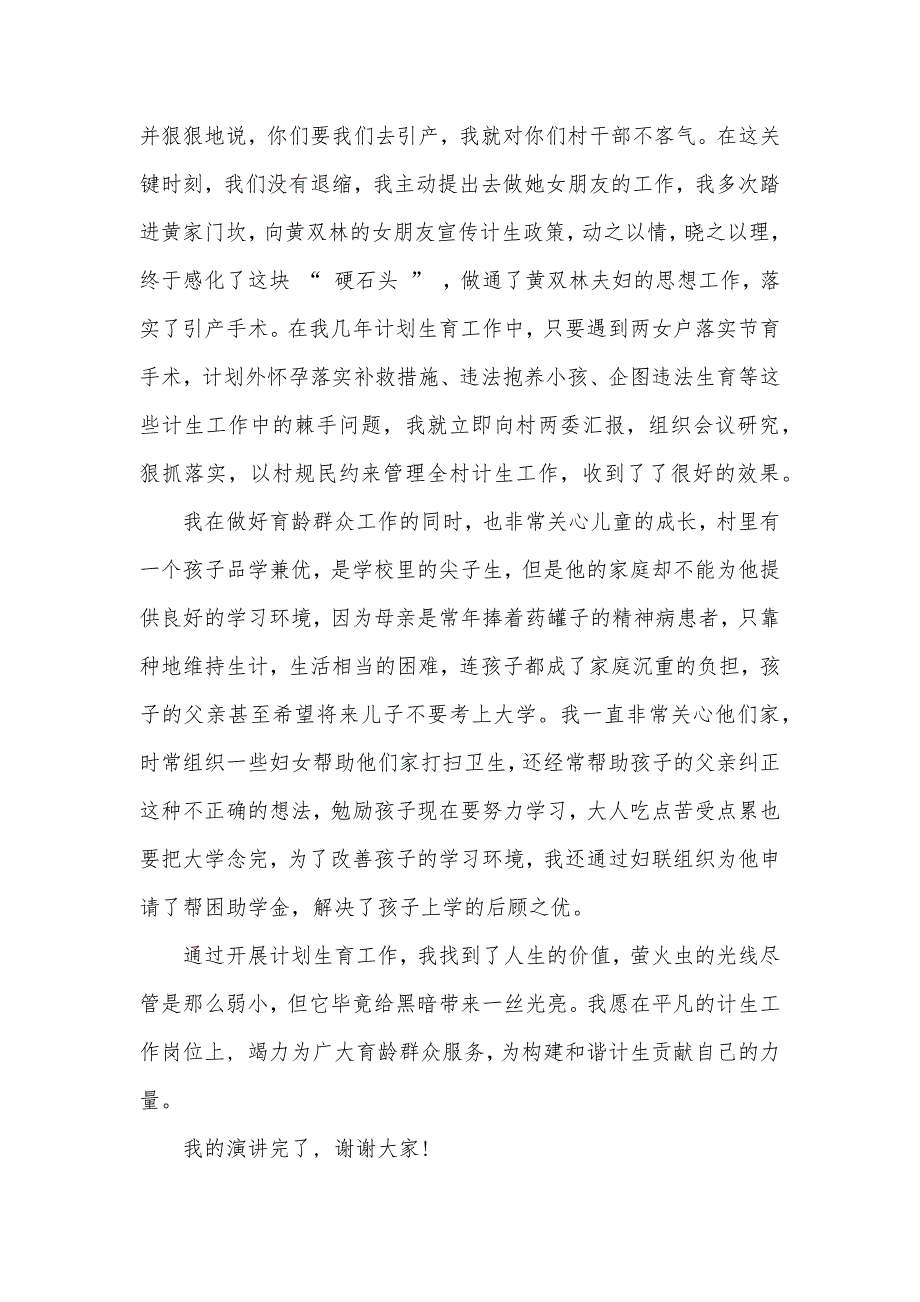 并狠狠地说，你们要我们去引产，我就对你们村干部不客气。在这关
键时刻，我们没有退缩，我主动提出去做她女朋友的工作，我多次踏
进黄家门坎，向黄双林的女朋友宣传计生政策，动之以情，晓之以理，
终于感化了这块 “ 硬石头 ” ，做通了黄双林夫妇的思想工作，落
实了引产手术。在我几年计划生育工作中，只要遇到两女户落实节育
手术，计划外怀孕落实补救措施、违法抱养小孩、企图违法生育等这
些计生工作中的棘手问题，我就立即向村两委汇报，组织会议研究，
狠抓落实，以村规民约来管理全村计生工作，收到了了很好的效果。
我在做好育龄群众工作的同时，也非常关心儿童的成长，村里有
一个孩子品学兼优，是学校里的尖子生，但是他的家庭却不能为他提
供良好的学习环境，因为母亲是常年捧着药罐子的精神病患者，只靠
种地维持生计，生活相当的困难，连孩子都成了家庭沉重的负担，孩
子的父亲甚至希望将来儿子不要考上大学。我一直非常关心他们家，
时常组织一些妇女帮助他们家打扫卫生，还经常帮助孩子的父亲纠正
这种不正确的想法，勉励孩子现在要努力学习，大人吃点苦受点累也
要把大学念完，为了改善孩子的学习环境，我还通过妇联组织为他申
请了帮困助学金，解决了孩子上学的后顾之优。
通过开展计划生育工作，我找到了人生的价值，萤火虫的光线尽
管是那么弱小，但它毕竟给黑暗带来一丝光亮。我愿在平凡的计生工
作岗位上，竭力为广大育龄群众服务，为构建和谐计生贡献自己的力
量。
我的演讲完了，谢谢大家！